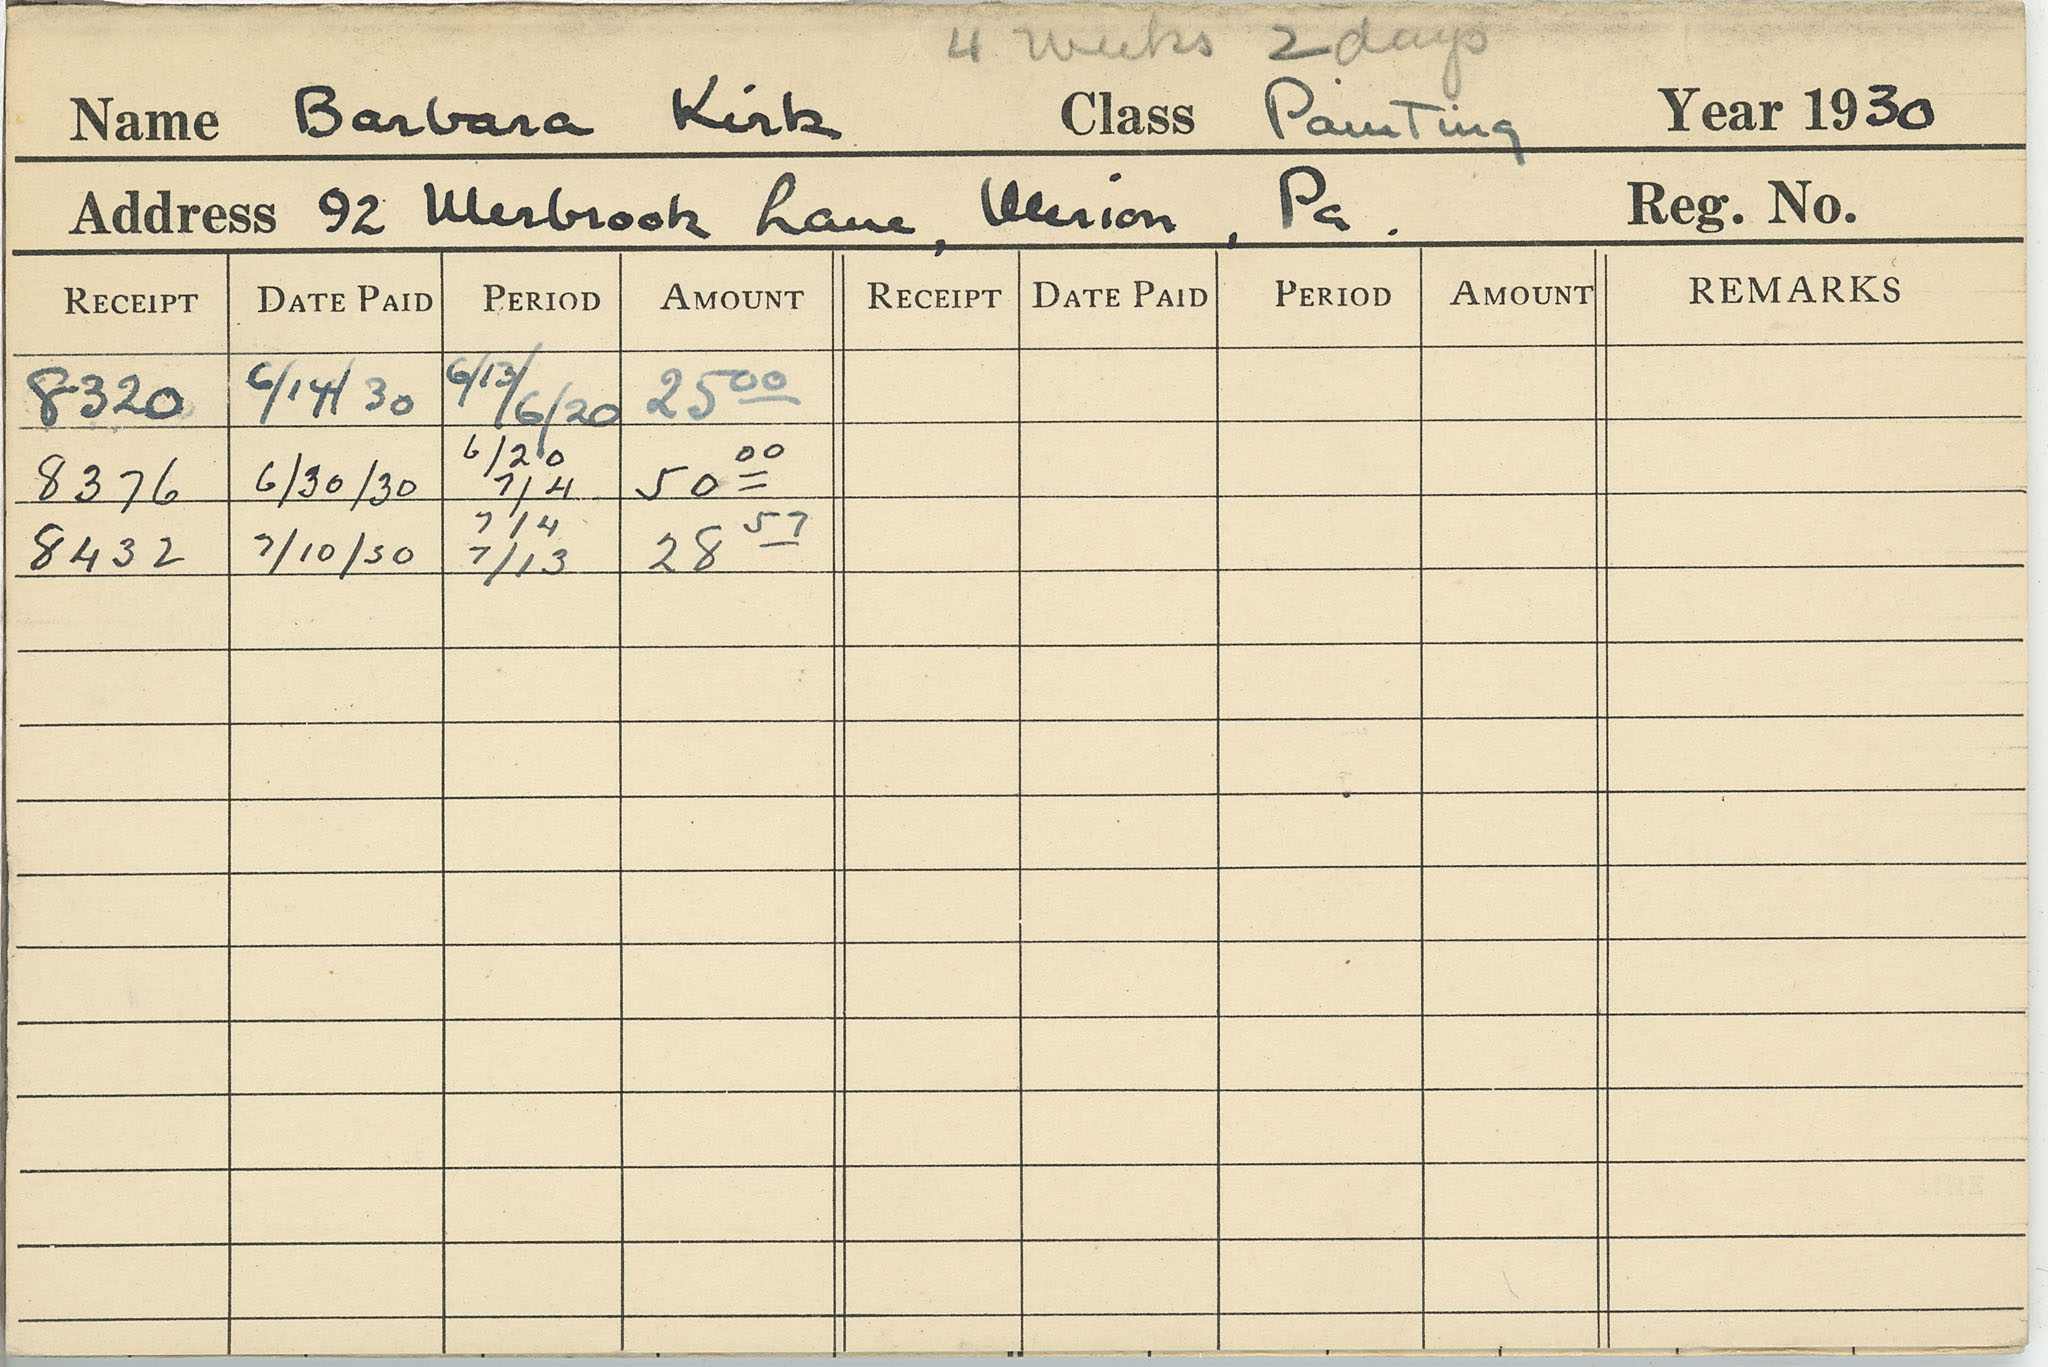 4 weeks 2 days
Name Barbara Kirk Class Painting Year 1930
Address 92 Merbrook Lane, Merion, Pa. Reg. No.
RECEIPT DATE PAID PERIOD AMOUNT RECEIPT DATE PAID PERIOD AMOUNT REMARKS
8320 6/14/30 6/13/ 6/20 25 00
8376 6/30/30 6/20 7/4 50 00
8432 7/10/30 7/4 7/13 28 57